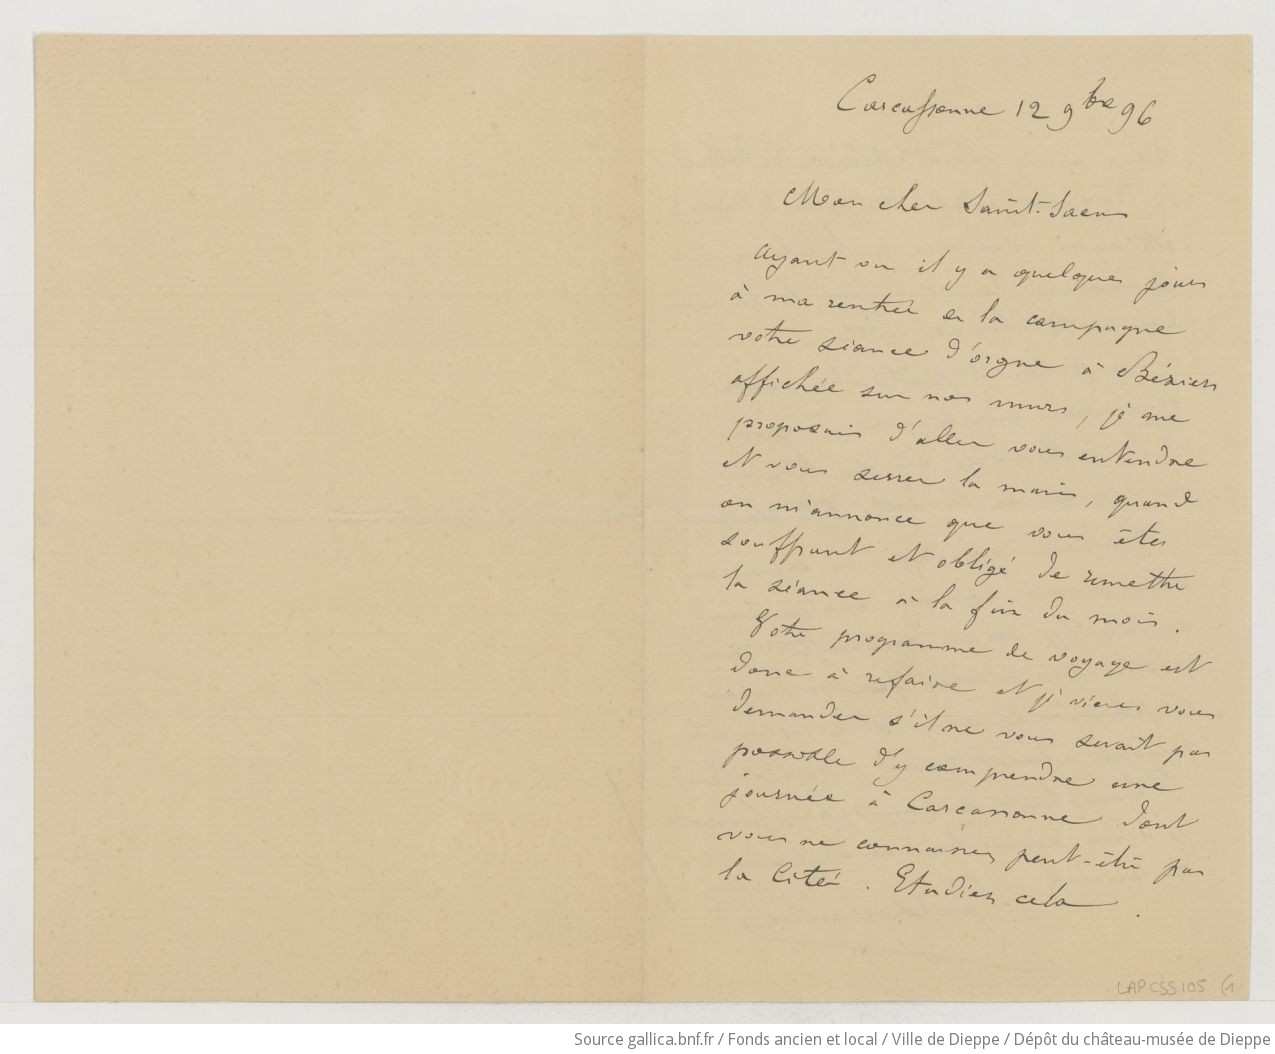 Carcassonne 12 9bre 96
Mon cher Saint-Saens
Ayant vu il y a quelques jours
à ma rentrée de la campagne
votre séance d'orgue à Béziers
affichée sur nos murs, je me
proposais d'aller vous entendre
et vous serrer la main, quand
on m'annonce que vous êtes
souffrant et obligé de remettre
la séance à la fin du mois.
Votre programme de voyage est
donc à refaire et je viens vous
demander s'il ne vous serait pas
possible d'y comprendre une
journée à Carcassonne dont
vous ne connaissez peut-être pas
la Cité. Etudiez cela.
LAPCSS105 (1
Source gallica.bnf.fr / Fonds ancien et local / Ville de Dieppe / Dépôt du château-musée de Dieppe